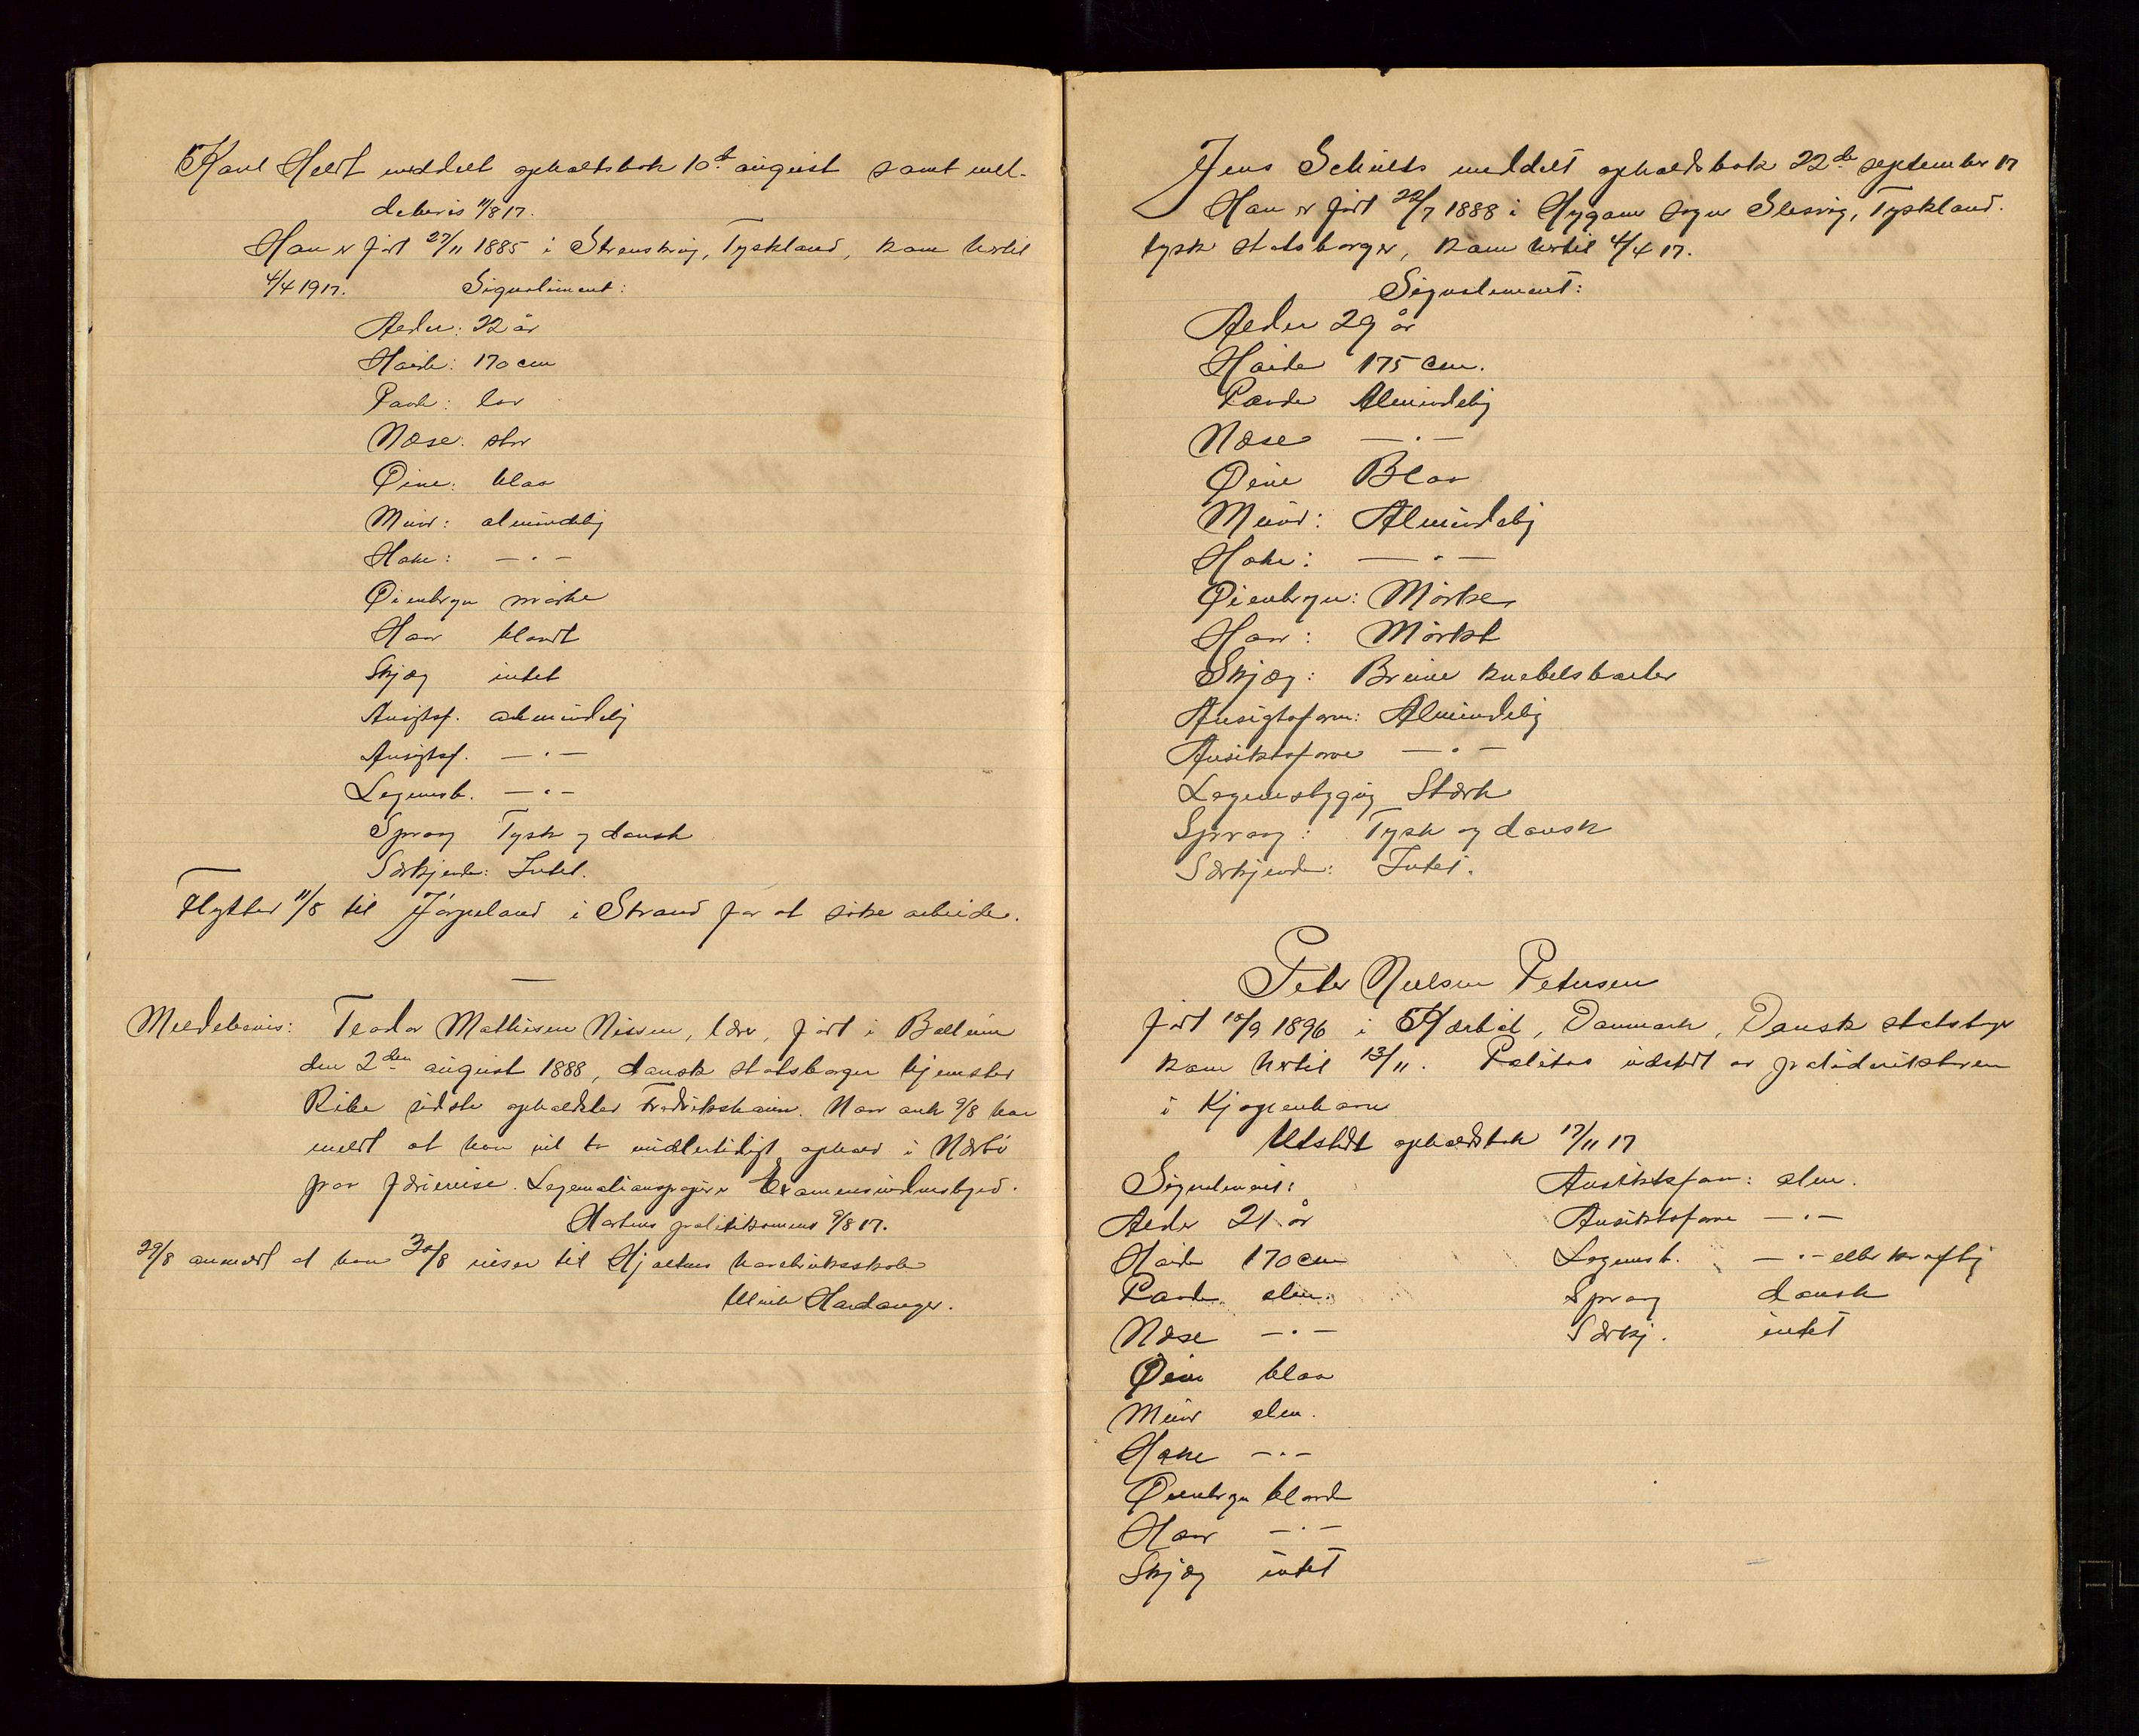 Karl Heldt meddelt opholdsbok 10de august samt mel-
debevis 11/8 17.
Han er født 27/11 1885 i Tyskland, kom hertil
4/4 1917. Signalement:
Alder: 22 år
Høide: 170 cm
Pande: lav
Næse: stor
Øine: blaa
Mund: almindelig
Hake: —·—
Øienbryn mørke
Haar blondt
Skjæg intet
Ansigtsf. almindelig
Ansigtsf. —·—
Legemsb. —·—
Sprog Tysk og dansk
Særkjende: Intet.
Flytter 11/8 til Jørpeland i Strand for at søke arbeide.
—
Meldebevis: Teodor Mathiesen Nissen, lærer, født i Ballum
den 2den august 1888, dansk statsborger hjemsted
Ribe sidste opholdssted Fredrikshavn. Han ank 9/8 har
meldt at han vil ta midlertidigt ophold i Nærbø
paa feriereise. Legemationspapirer Examensvidnesbyrd.
politikammer 9/8 17.
29/8 anmeldt at han 30/8 reiser til Hjeltnes havebruksskole
Ulvik Hardanger.
Jens Schults meddelt opholdsbok 22de september 17
Han er født 22/7 1888 i Hygum sogn Slesvig, Tyskland.
tysk statsborger, kom hertil 4/4 17.
Signalement:
Alder 29 år
Høide 175 cm.
Pande Almindelig
Næse —·—
Øine Blaa
Mund: Almindelig
Hake: —·—
Øienbryn: Mørke
Haar: Mørkt
Skjæg: Brune knebelsbarter
Ansigtsform: Almindelig
Ansiktsfarve —·—
Legemsbygnig Stærk
Sprog: Tysk og dansk
Særkjende: Intet.
Peter Nielsen Petersen
født 10/9 1896 i Danmark, Dansk statsborger
kom hertil 13/11. Politipas utstedt av politidirektøren
i Kjøpenhavn
Utstedt opholdsbok 17/11 17
Signalement: Ansiktsform: alm.
Alder 21 år Ansiktsfarve —·—
Høide 170 cm Legemsb. —·— eller kraftig
Pande alm. Sprog dansk
Næse —·— Særkj. intet
Øine blaa
Mund alm.
Hake —·—
Øienbryn blonde
Haar —·—
Skjæg intet